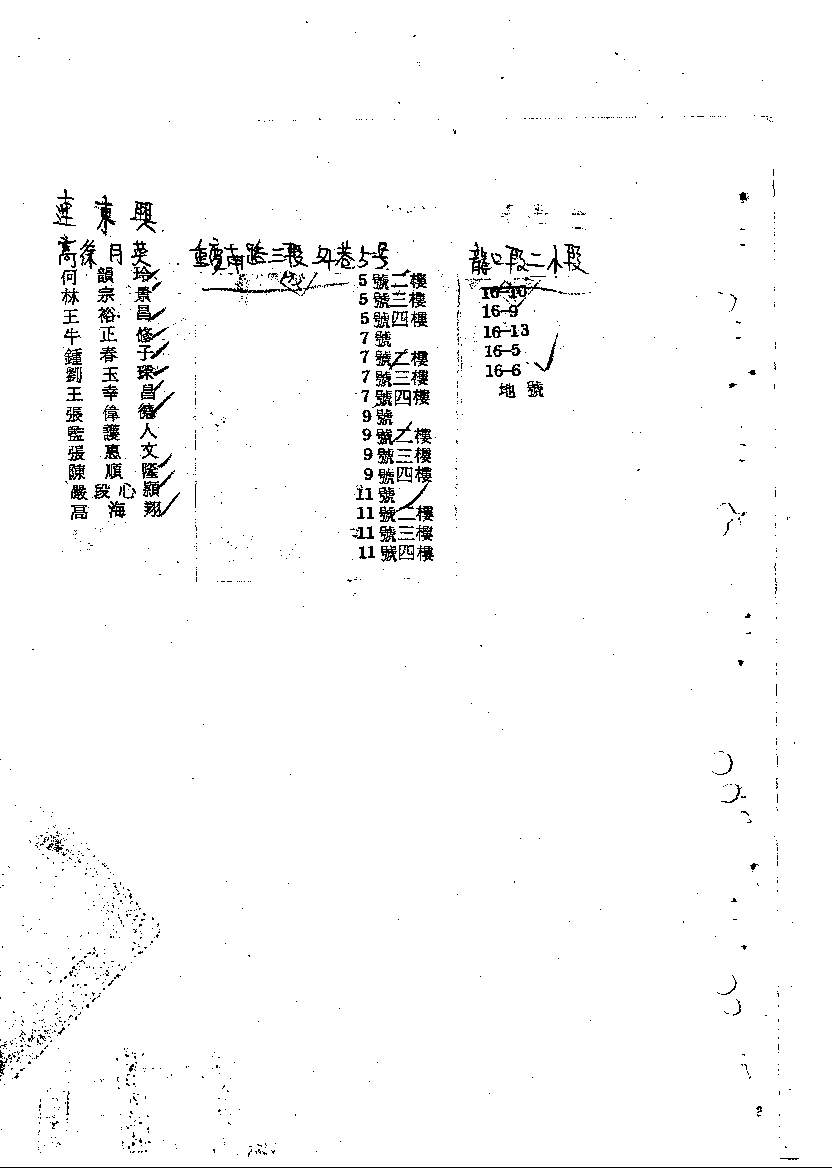 連東興
高徐月英
何韻玲
林宗景
王裕昌
牛正修
鍾春子
劉玉琛
王幸昌
張偉德
監護人
張惠文
陳順隆
嚴段心穎
高海翔
重慶南路三段 巷5号
5號二樓
5號三樓
5號四樓
7號
7號二樓
7號三樓
7號四樓
9號
9號二樓
9號三樓
9號四樓
11號
11號二樓
11號三樓
11號四樓
龍口段二小段
16-10
16-9
16-13
16-5
16-6
地號